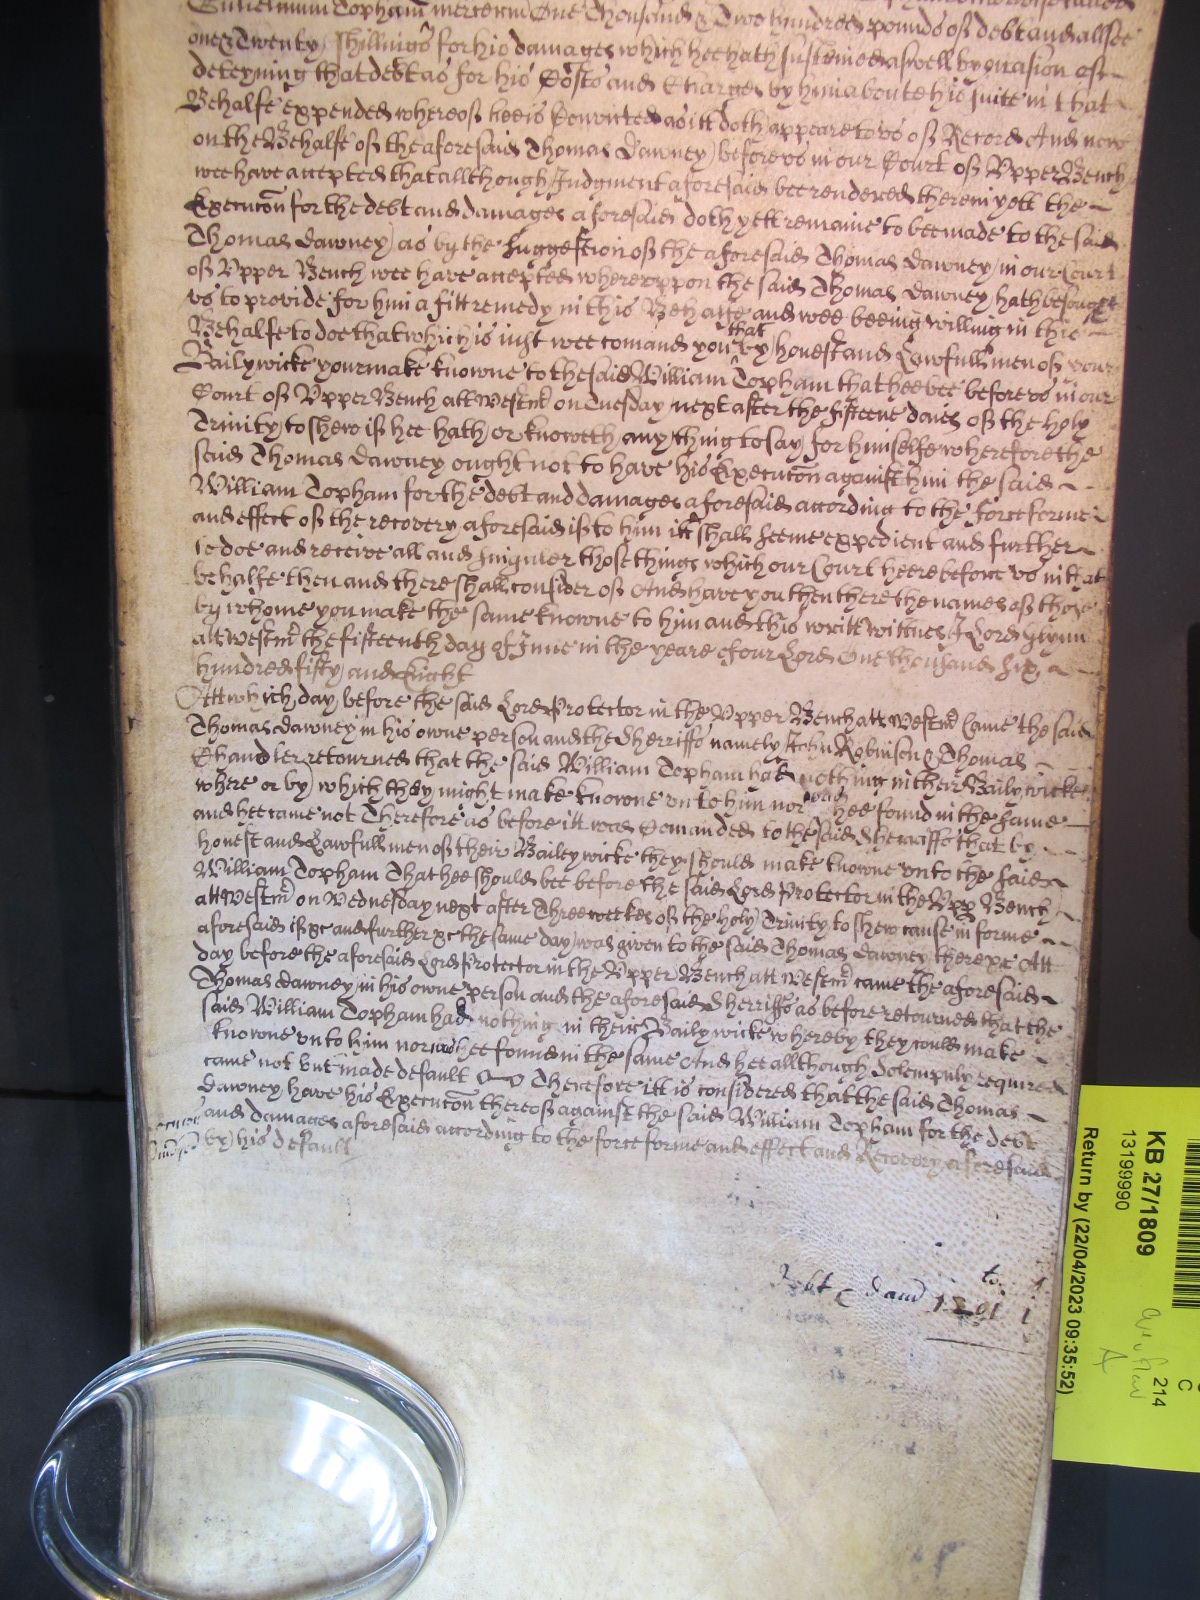 Topham mercer One Thousand & Two hundred pounds of debt and allsoe
one & Twenty shillings for his damages which hee hath susteined aswell by occasion of
deteyning that debt as for his Costs and Charges by him about his suite in that
Behalfe expended whereof hee is Convicted as itt doth appeare to us of Record And now
on the Behalfe of the aforesaid Thomas Dawney before us in our Court of Upper Bench
wee have accepted that allthough Judgment aforesaid bee rendered therein yett the
Execucon for the debt and damages aforesaid doth yett remaine to bee made to the said
Thomas Dawney as by the suggestion of the aforesaid Thomas Dawney in our Court
of Upper Bench wee have accepted whereuppon the said Thomas Dawney hath besought
us to provide for him a fitt remedy in this Behalfe and wee beeing willing in this
Behalfe to doe that which is just wee comand you that by honest and Lawfull men of your
Bailywicke you make knowne to the said William Topham that hee bee before us in our
Court of Upper Bench att Westmr on Tuesday next after the fifteene daies of the holy
Trinity to shew if hee hath or knoweth any thing to say for himselfe wherefore the
said Thomas Dawney ought not to have his Execucon against him the said
William Topham for the debt and damages aforesaid according to the force forme
and effect of the recovery aforesaid if to him itt shall seeme expedient and further
to doe and receive all and singuler those things which our Court heere before us in that
behalfe then and there shall consider of And have you then there the names of those
by whome you make the same knowne to him and this writt wittnes J Lord Glynn
att Westmr the fifteenth day of June in the yeare of our Lord One thousand six
hundred fifty and Eight
Att which day before the said Lord Protector in the Upper Bench att Westmr Came the said
Thomas Dawney in his owne person and the Sherriffs namely John Robinson & Thomas
Chandler retourned that the said William Topham had nothing in their Bailywicke
where or by which they might make knowne unto him nor was hee found in the same
and hee came not Therefore as before itt was Comanded to the said Sherriffs that by
honest and Lawfull men of their Baileywicke they should make knowne unto the said
William Topham That hee should bee before the said Lord Protector in the Upp Bench
att Westmr on Wednesday next after Three weekes of the holy Trinity to shew cause in forme
aforesaid if &c and further &c the same day was given to the said Thomas Dawney there &c Att
day before the aforesaid Lord Protector in the Upper Bench att Westmr came the aforesaid
Thomas Dawney in his owne person and the aforesaid Sherriffs as before retourned that the
said William Topham had nothing in their Bailywicke whereby they could make
knowne unto him nor was hee found in the same And hee allthough Solempnly required
came not but made default Therefore itt is considered that the said Thomas
Dawney have his Execucon thereof against the said William Topham for the debt
and damages aforesaid according to the force forme and effect and Recovery aforesaid
by his default
Debt & dam 1201 1
KB 27/1809
13199990
Return by (22/04/2023 09:35:52)
C
214
A